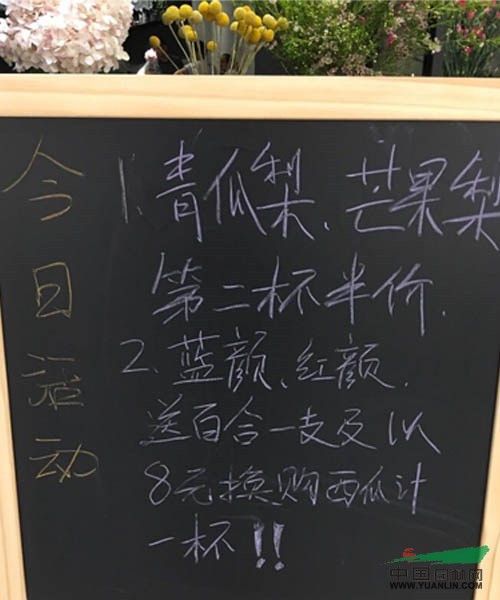 今日活动
1、青瓜梨、芒果梨
第二杯半价.
2、蓝颜、红颜.
送百合一支及以
8元换购西瓜汁
一杯!!
中国园林网
WWW.YUANLIN.COM